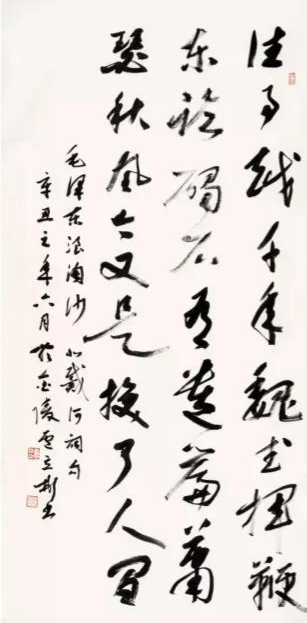 往事越千年魏武揮鞭
东臨碣石有遺篇蕭
瑟秋风今又是换了人间
毛澤东浪淘沙北戴河詞句
辛丑之年六月於金陵立书